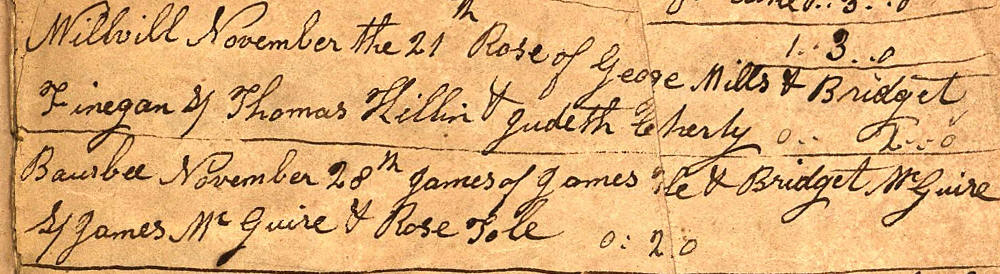 1..3..0
Millvill November the 21th Rose of Geoge Mills & Bridget
Finegan Sp Thomas Killin & Judeth 0.. 2..0
Bausbee November 28th James of James & Bridget McGuire
Sp James McGuire & Rose Tole 0: 2 0